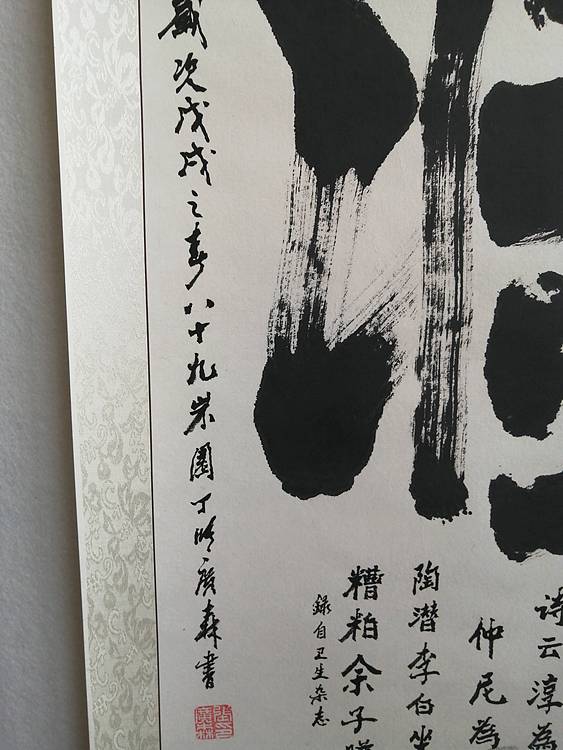 诗云淳為
仲尼為
陶潜李白坐
糟粕余子
錄自卫生杂志
歲次戊戌之春八十九岁園丁时廣森書